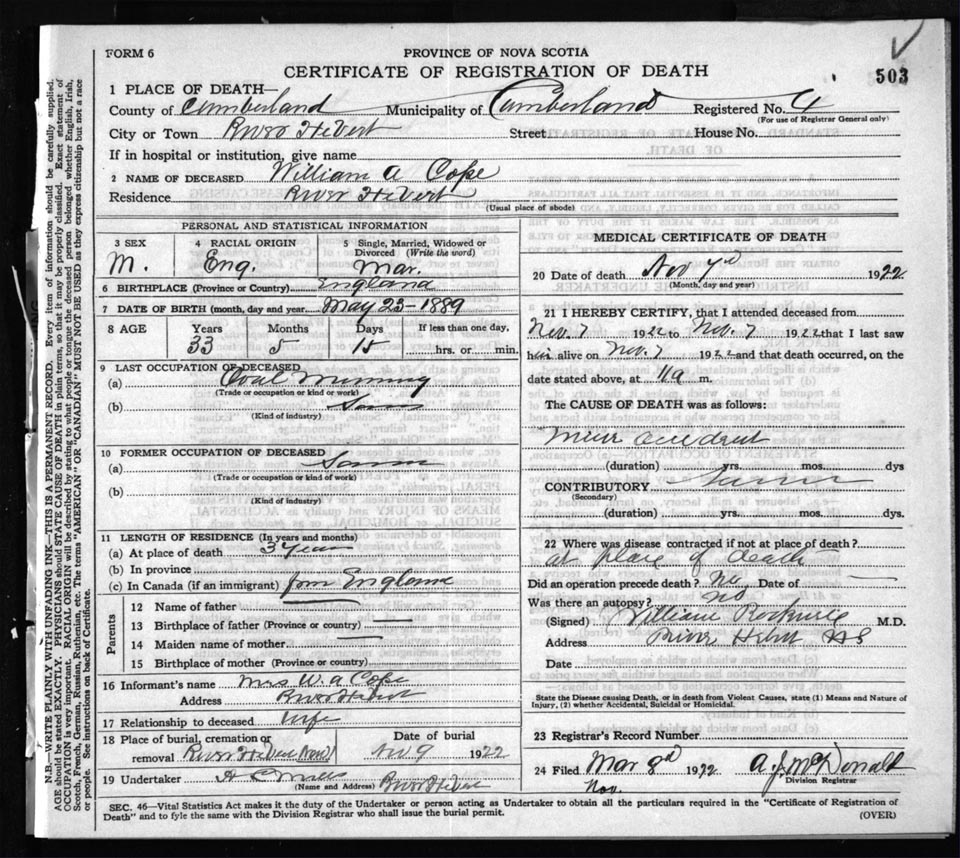 FORM 6
PROVINCE OF NOVA SCOTIA
CERTIFICATE OF REGISTRATION OF DEATH
503
1 PLACE OF DEATH—
County of Cumberland Municipality of Cumberland Registered No. 4
(For use of Registrar General only)
City or Town River Hebert Street House No.
If in hospital or institution, give name
2 NAME OF DECEASED William A Cope
Residence River Hebert
(Usual place of abode)
PERSONAL AND STATISTICAL INFORMATION
3 SEX 4 RACIAL ORIGIN 5 Single, Married, Widowed or Divorced (Write the word)
M. Eng. Mar.
6 BIRTHPLACE (Province or Country) England
7 DATE OF BIRTH (month, day and year) May 23-1889
8 AGE Years Months Days If less than one day,
33 5 15 hrs. or min.
9 LAST OCCUPATION OF DECEASED
(a) Coal Mining
(Trade or occupation or kind of work)
(b) Same
(Kind of industry)
10 FORMER OCCUPATION OF DECEASED
(a) Same
(Trade or occupation or kind of work)
(b)
(Kind of industry)
11 LENGTH OF RESIDENCE (In years and months)
(a) At place of death 3 Years
(b) In province
(c) In Canada (if an immigrant) from England
Parents
12 Name of father
13 Birthplace of father (Province or country)
14 Maiden name of mother
15 Birthplace of mother (Province or country)
16 Informant's name Mrs W. A Cope
Address River Hebert
17 Relationship to deceased Wife
18 Place of burial, cremation or removal River Hebert Date of burial Nov 9 1922
19 Undertaker River Hebert
(Name and Address)
MEDICAL CERTIFICATE OF DEATH
20 Date of death Nov 7 1922
(Month, day and year)
21 I HEREBY CERTIFY, that I attended deceased from
Nov. 7 1922 to Nov. 7 1922 that I last saw
him alive on Nov. 7 1922 and that death occurred, on the
date stated above, at 11 a m.
The CAUSE OF DEATH was as follows:
Mine accident
(duration) yrs. mos. dys
CONTRIBUTORY Same
(Secondary)
(duration) yrs. mos. dys.
22 Where was disease contracted if not at place of death?
at place of death
Did an operation precede death? No Date of
Was there an autopsy? no
(Signed) William Rockwell M.D.
Address River Hebert NS
Date
State the Disease causing Death, or in death from Violent Causes, state (1) Means and Nature of
Injury, (2) whether Accidental, Suicidal or Homicidal.
23 Registrar's Record Number
24 Filed Mar 8 1922 A. J. McDonald
Nov. Division Registrar
SEC. 46—Vital Statistics Act makes it the duty of the Undertaker or person acting as Undertaker to obtain all the particulars required in the "Certificate of Registration of
Death" and to fyle the same with the Division Registrar who shall issue the burial permit.
(OVER)
N.B.—WRITE PLAINLY WITH UNFADING INK—THIS IS A PERMANENT RECORD. Every item of information should be carefully supplied.
AGE should be stated EXACTLY. PHYSICIANS should STATE CAUSE OF DEATH in plain terms, so that it may be properly classified. Exact statement of
OCCUPATION is very important. RACIAL ORIGIN will be described by stating to what people or tongue the deceased person belonged whether English, Irish,
Scotch, French, German, Russian, Ruthenian, etc. The terms "AMERICAN" OR "CANADIAN" MUST NOT BE USED as they express citizenship but not a race
or people. See instructions on back of Certificate.